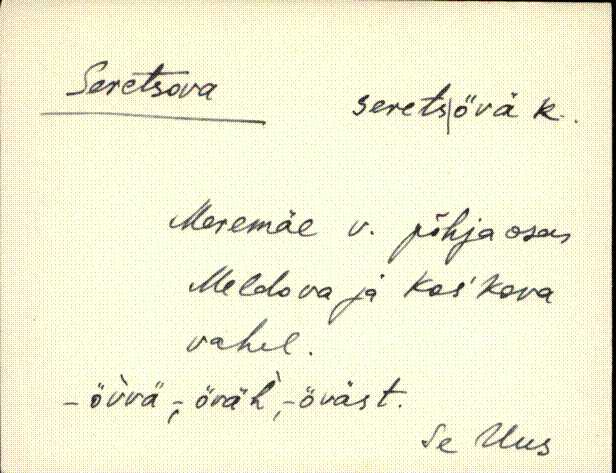 Seretsova serets|övä k.
Meremäe v. põhjaosas
Meldova ja Kos'kova
vahel.
- öv̀vä -, öväh̀, - öväst.
Se Uus